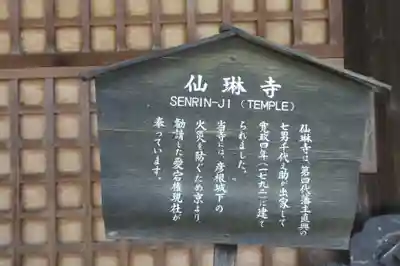 仙琳寺
SENRIN-JI (TEMPLE)
仙琳寺は、第四代藩主直興の
七男千代之助が出家して
寛政四年(一七九二)に建て
られました。
当寺には、彦根城下の
火災を防ぐため京より
勧請した愛宕権現社が
奉っています。